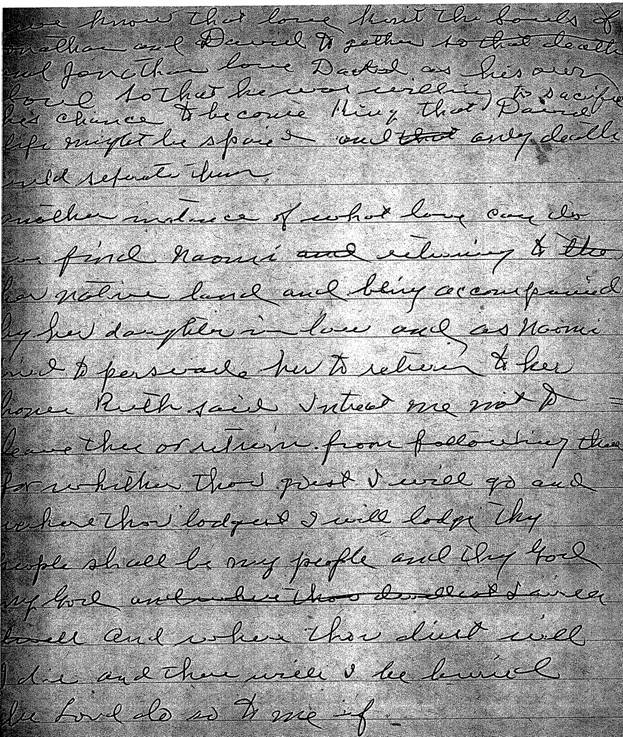 we know that love knit the Souls of
Jonathan and David to gather so that death
and Jonathan love David as his own
Soul so that he was willing to sacrifice
his chance to become King that David
life might be spaired and that only death
could seperate them
another instance of what love can do
we find Naomi and returning to the
her native land and being accompanied
by her daughter in love and as Naomi
tried to persuade her to return to her
home Ruth said Intreat me not to
leave thee or return from following thee
for whither thou goest I will go and
where thou lodgest I will lodge thy
people shall be my people and thy God
my God and where thou dwellest I will
dwell and where thou diest will
I die and there will I be buried
the Lord do so to me if